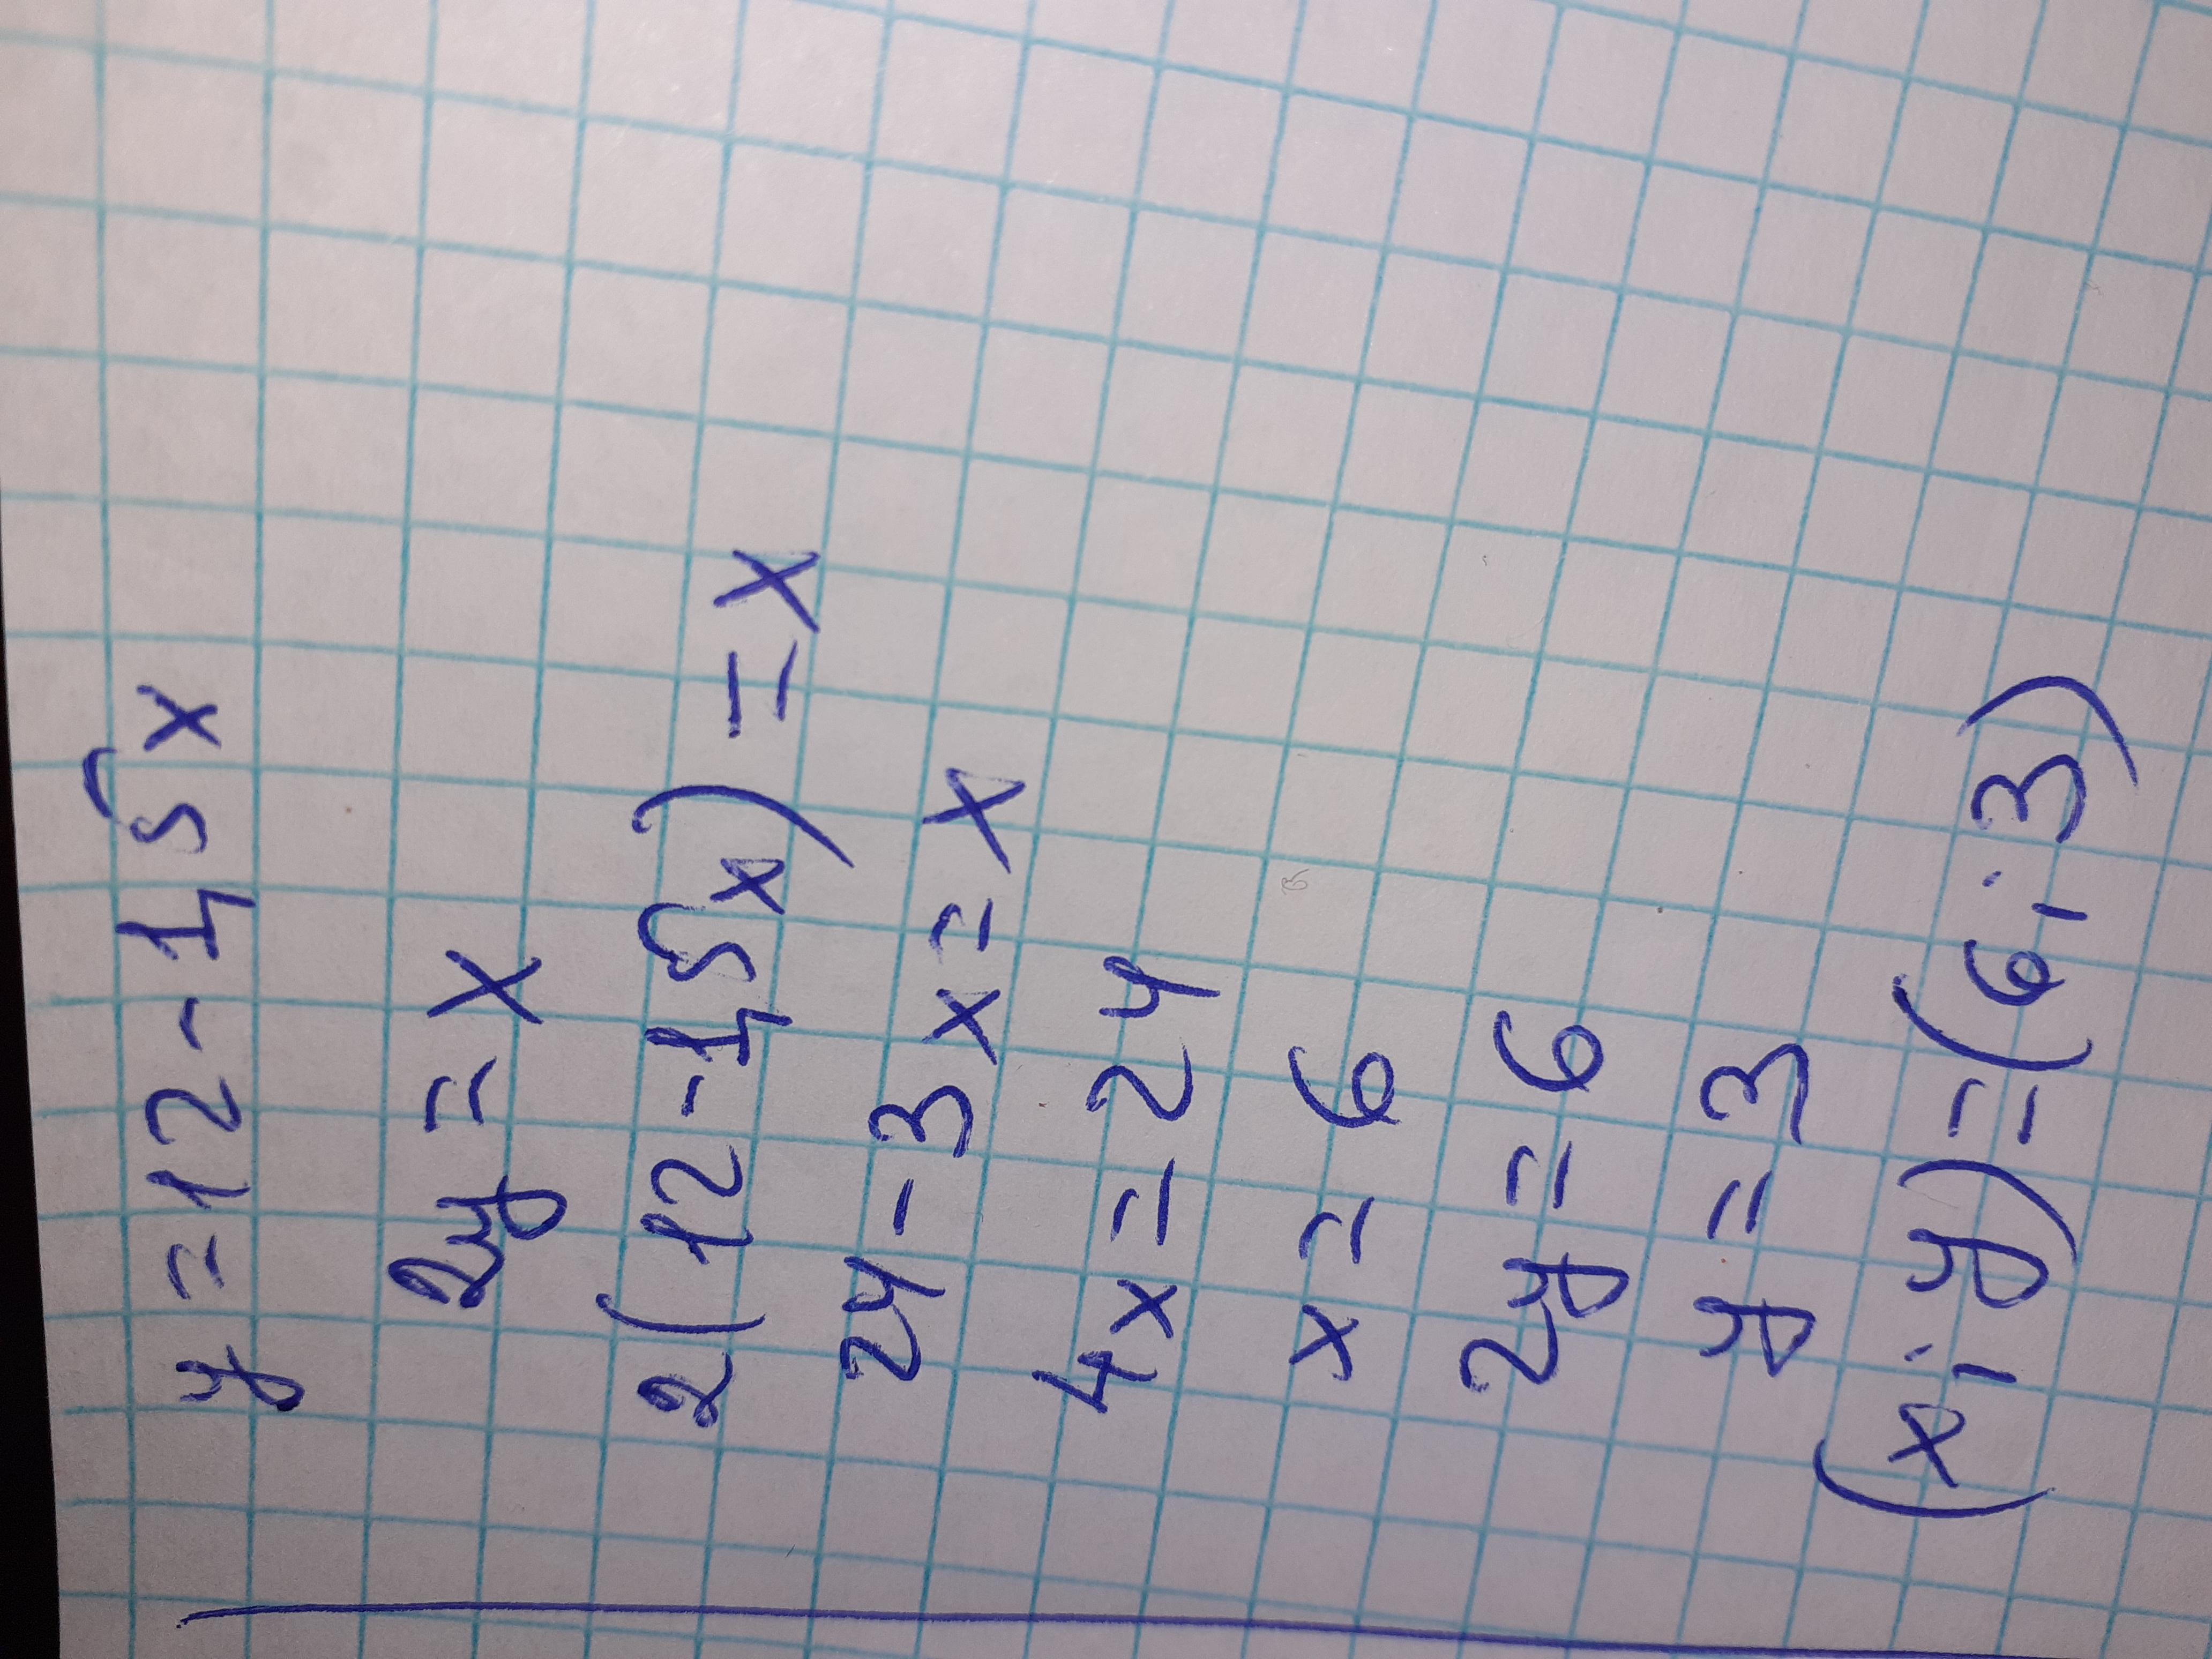 y = 12 - 1,5x
2y = x
2(12 - 1,5x) = x
24 - 3x = x
4x = 24
x = 6
2y = 6
y = 3
(x; y) = (6; 3)